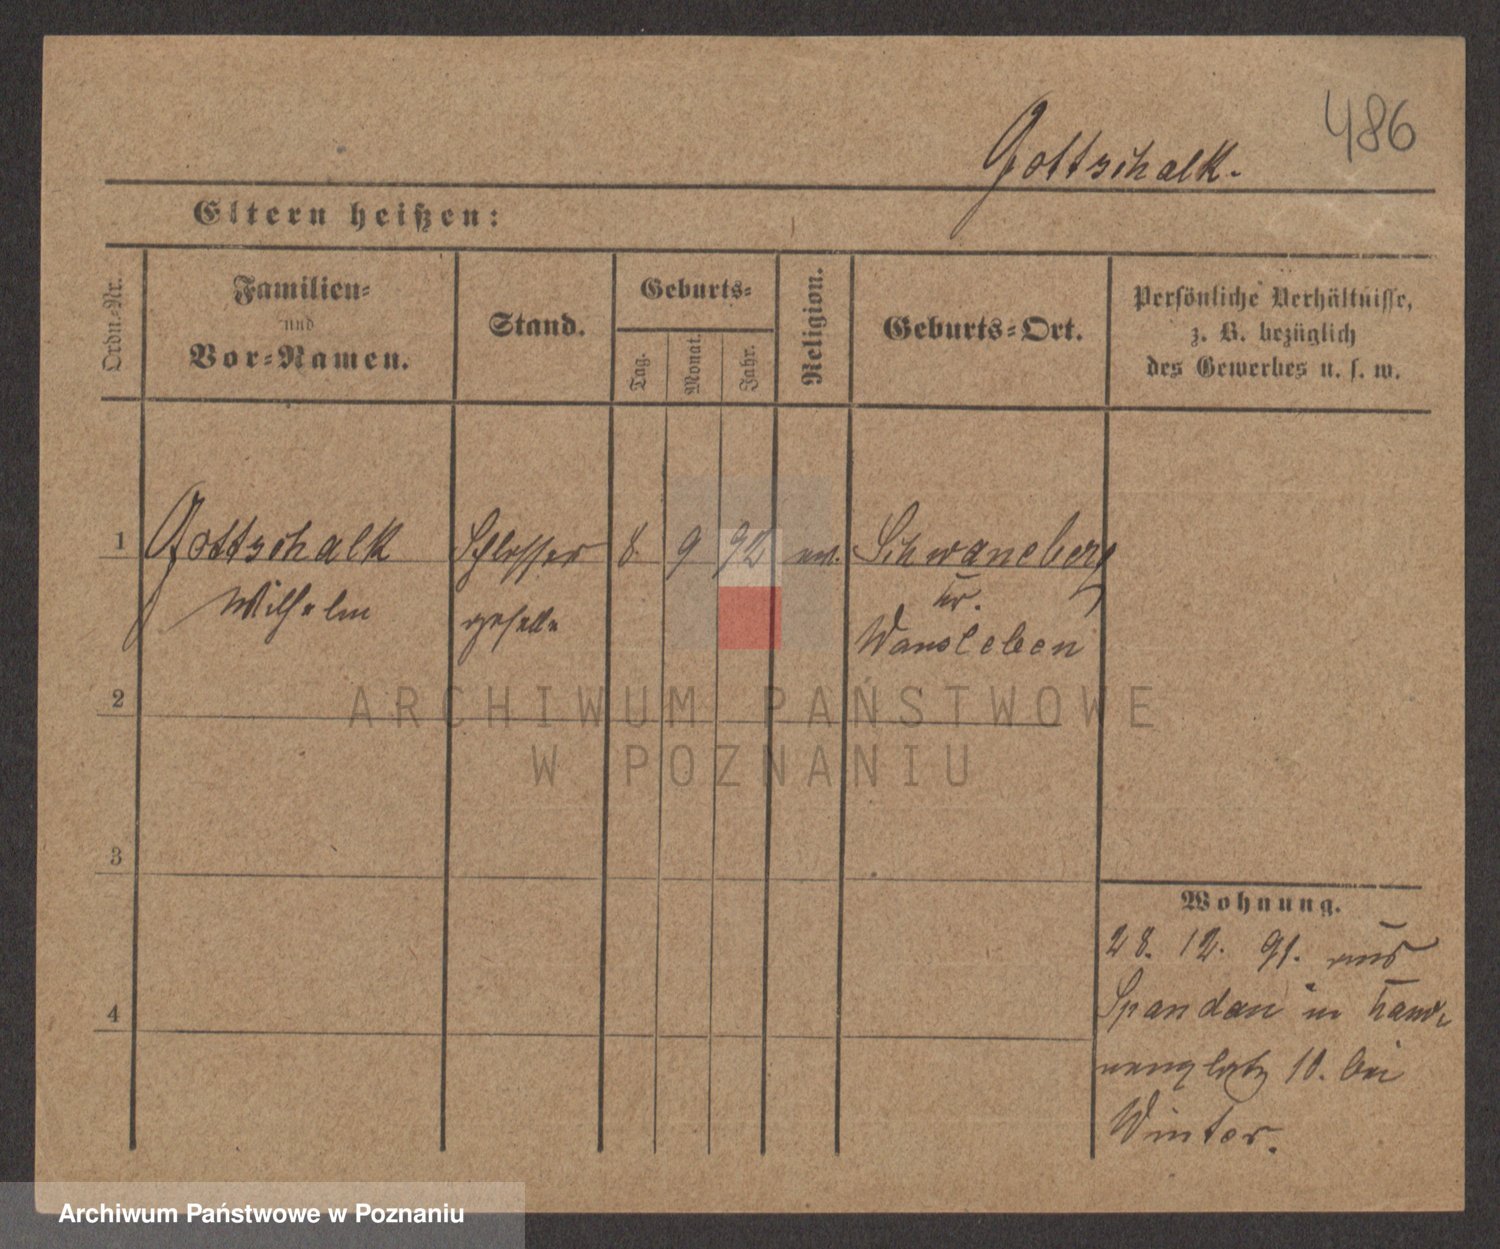 486
Gottschalk.
Eltern heißen:
Ordn.-Nr.
Familien-
und
Vor-Namen.
Stand.
Geburts-
Tag.
Monat.
Jahr.
Religion.
Geburts-Ort.
Persönliche Verhältnisse,
z. B. bezüglich
des Gewerbes u. s. w.
1 Gottschalk Schlosser 8. 9 92 Schwaneberg
Wilhelm geselle Kr.
Wansleben
2
3
4
Wohnung.
28. 12. 91. aus
Spandau in
10. bei
Winter.
ARCHIWUM PAŃSTWOWE
W POZNANIU
Archiwum Państwowe w Poznaniu